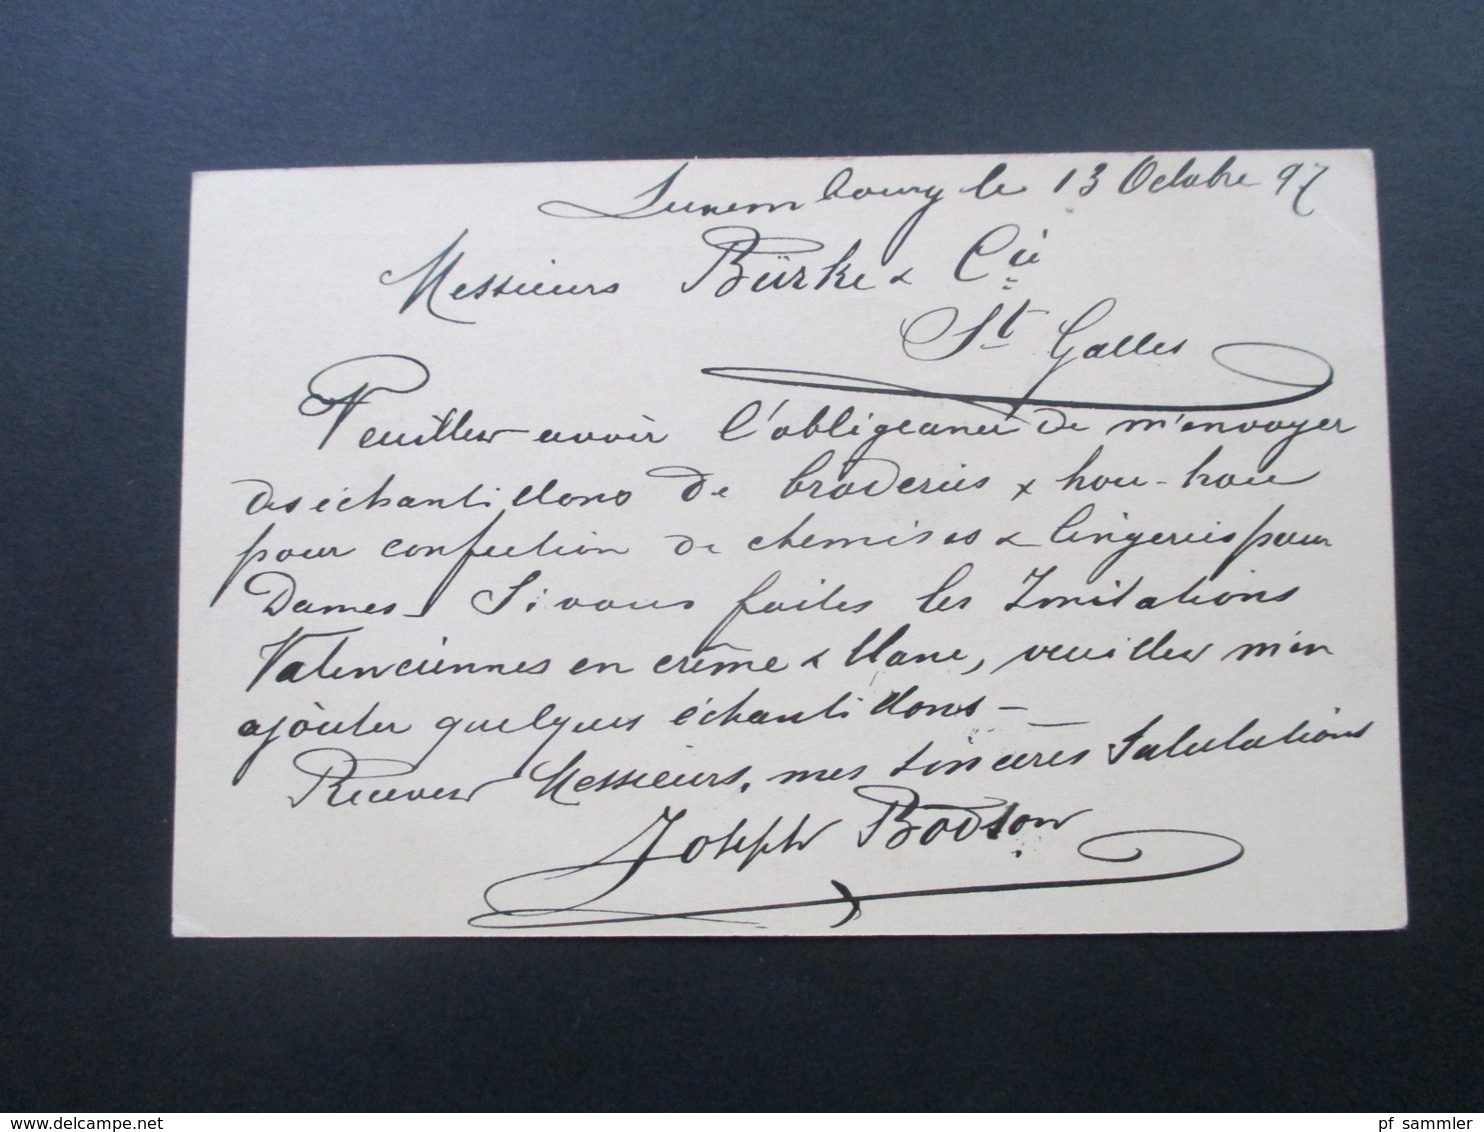 Luxembourg le 13 Octobre 97
Messieurs Bürke & Cie
St Galles
Veuillez avoir l'obligeance de m'envoyer
des échantillons de broderies & trou-trou
pour confection de chemises & lingeries pour
Dames. Si vous faites les Imitations
Valenciennes en crème & blanc, veuillez m'en
ajouter quelques échantillons –
Recevez Messieurs, mes sincères Salutations
Joseph Bodson
pf_sammler